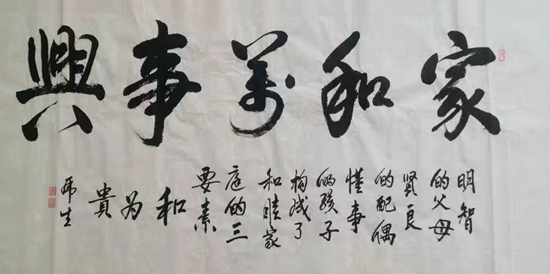 家和萬事興
明智
的父母
贤良
的配偶
懂事
的孩子
构成了
和睦家
庭的三
要素
和
为
貴